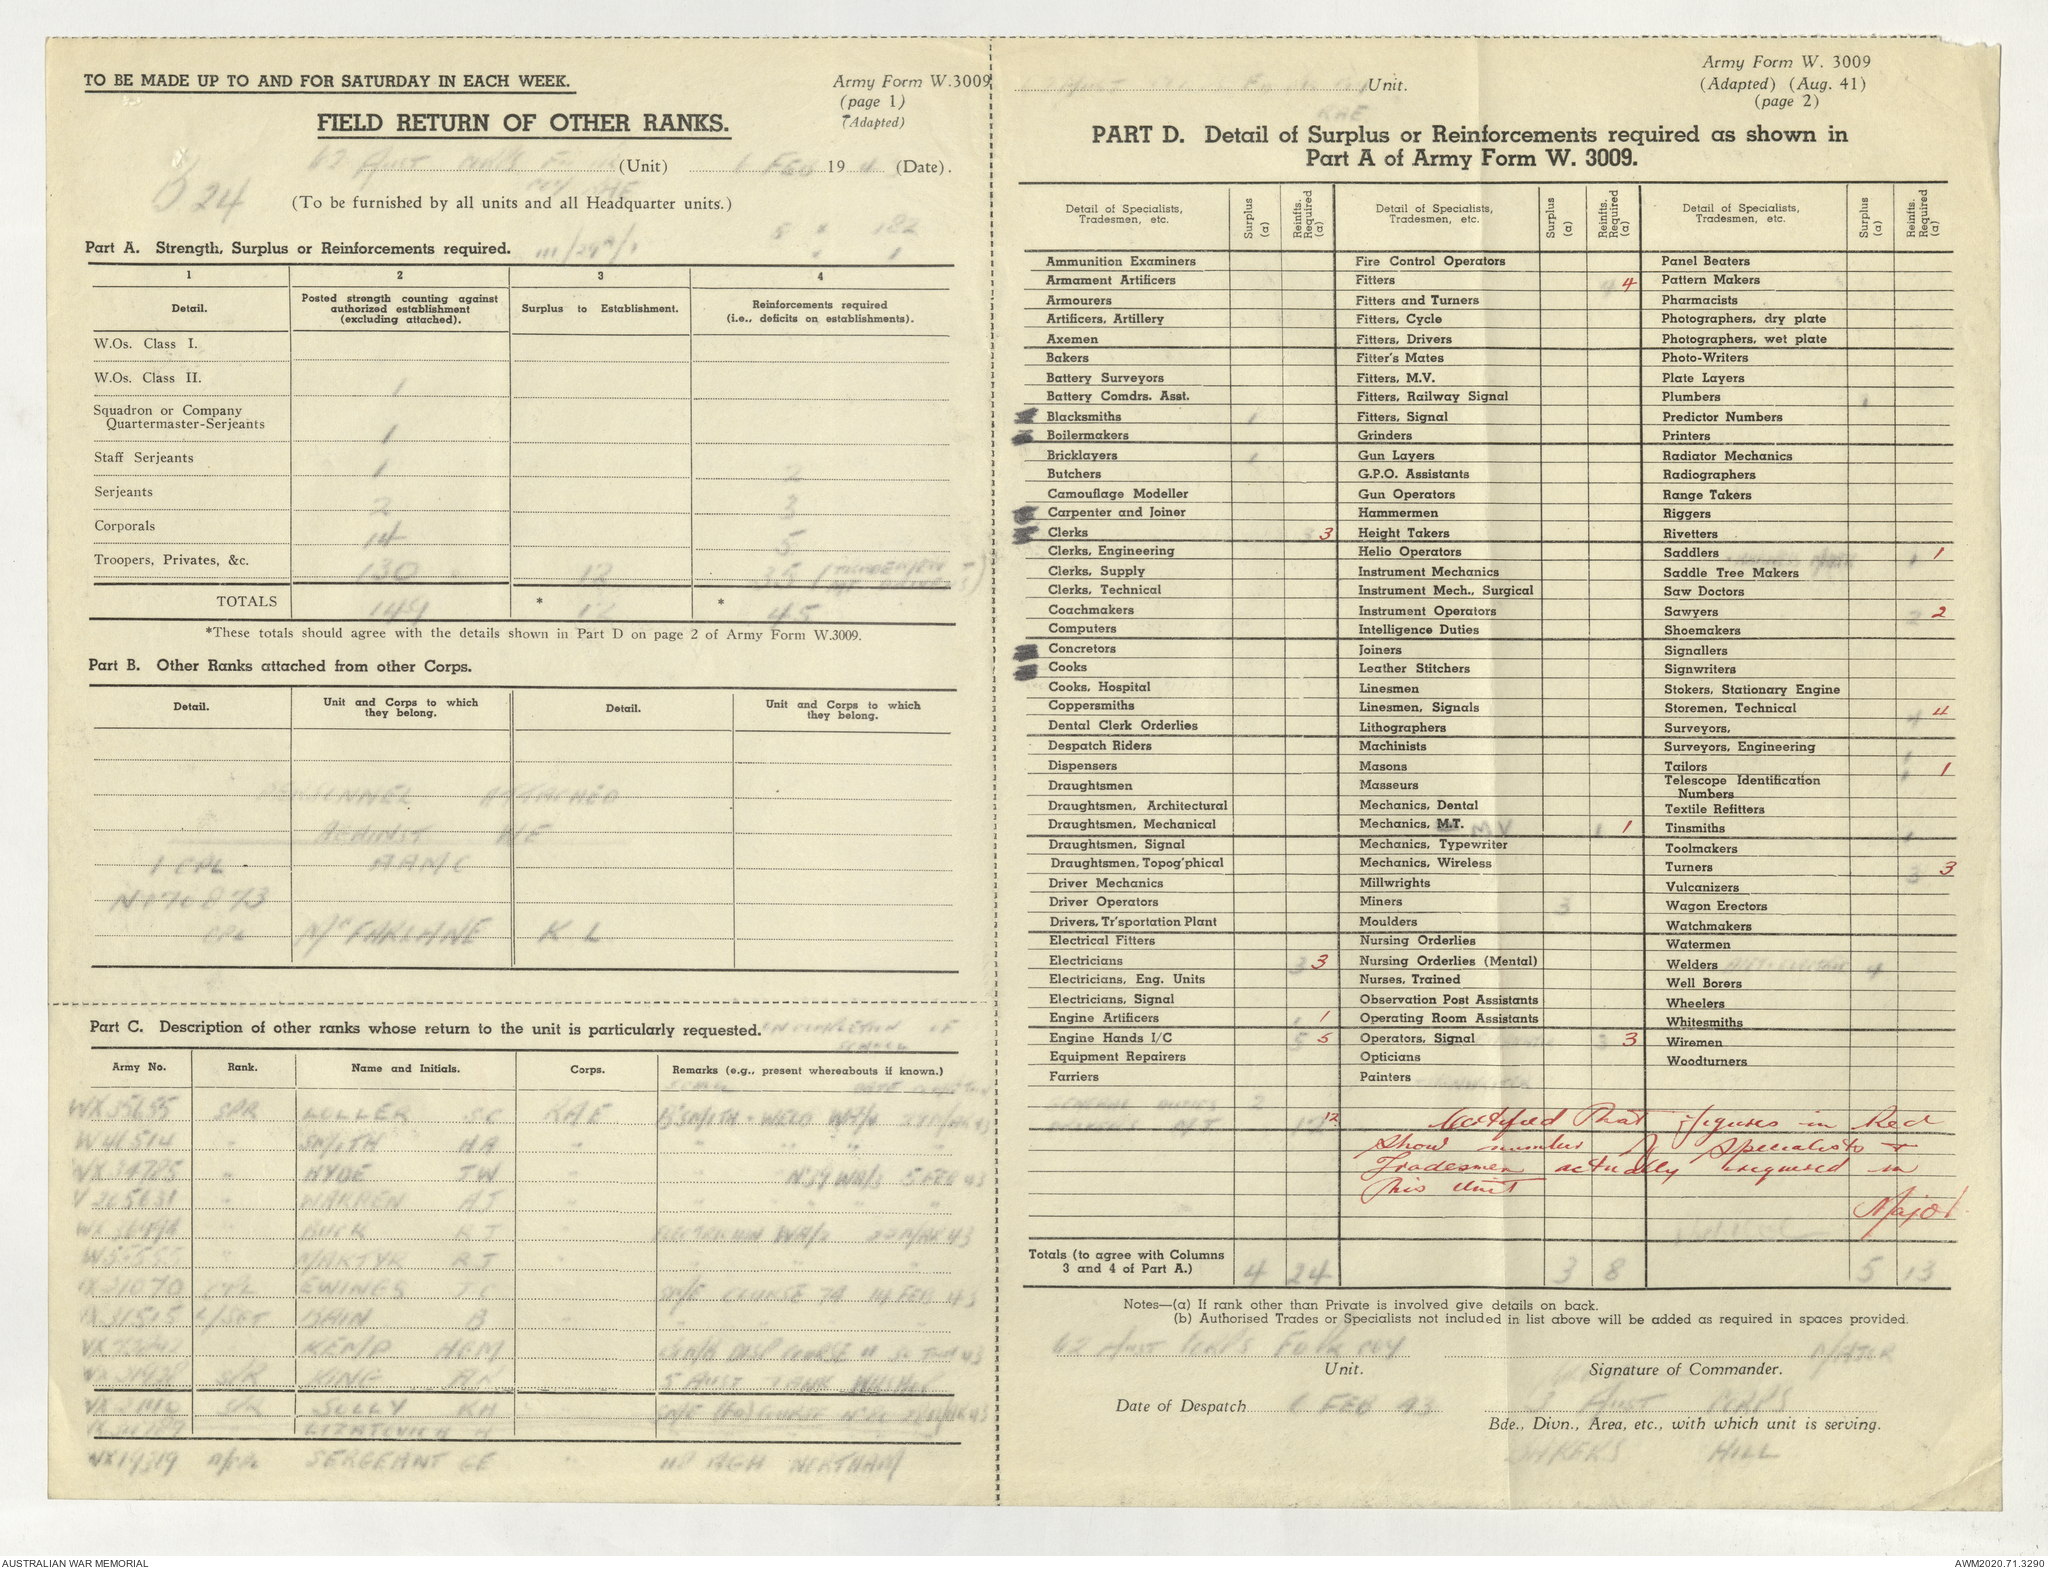 TO BE MADE UP TO AND FOR SATURDAY IN EACH WEEK.
Army Form W.3009
(page 1)
(Adapted)
FIELD RETURN OF OTHER RANKS.
62 Aust Corps (Unit) 6 FEB 19 43 (Date).
COY RAE
D 24
(To be furnished by all units and all Headquarter units.)
5 " 182
Part A. Strength, Surplus or Reinforcements required. " 1
1 2 3 4
Detail. Posted strength counting against authorized establishment (excluding attached). Surplus to Establishment. Reinforcements required (i.e., deficits on establishments).
W.Os. Class I.
W.Os. Class II. 1
Squadron or Company Quartermaster-Serjeants 1
Staff Serjeants 1 2
Serjeants 2 3
Corporals 14 5
Troopers, Privates, &c. 130 12 35 (TRADESMEN & MT DRIVERS)
TOTALS 149 * 12 * 45
*These totals should agree with the details shown in Part D on page 2 of Army Form W.3009.
Part B. Other Ranks attached from other Corps.
Detail. Unit and Corps to which they belong. Detail. Unit and Corps to which they belong.
PERSONNEL ATTACHED
AGAINST WE
1 CPL AAMC
N176873
CPL McFARLANE K L
Part C. Description of other ranks whose return to the unit is particularly requested. ON COMPLETION OF
SCHOOL
Army No. Rank. Name and Initials. Corps. Remarks (e.g., present whereabouts if known.)
SCHOOL DATE COMPLETION
WX35655 SPR LOLLER SC RAE B'SMITH - WELD
W41514 " SMITH HA "
VX34785 " HYDE TW " 5 FEB 43
V265631 " WARREN AJ "
WX36494 BUCK RJ ELECTRICIAN 22 MAR 43
" MARTYR RJ
31070 CPL EWINGS TC SME COURSE 74 14 FEB 43
31515 L/SGT BAIN B
KEMP HEM BOMB DISP COURSE 43
SPR KING 5 AUST TANK
SPR SOLLY KH SME COURSE
VX19319 SERGEANT GE " 118 AGH NORTHAM
Unit.
RAE
Army Form W. 3009
(Adapted) (Aug. 41)
(page 2)
PART D. Detail of Surplus or Reinforcements required as shown in
Part A of Army Form W. 3009.
Detail of Specialists, Tradesmen, etc. Surplus (a) Reinfts. Required (a) Detail of Specialists, Tradesmen, etc. Surplus (a) Reinfts. Required (a) Detail of Specialists, Tradesmen, etc. Surplus (a) Reinfts. Required (a)
Ammunition Examiners Fire Control Operators Panel Beaters
Armament Artificers Fitters 4 4 Pattern Makers
Armourers Fitters and Turners Pharmacists
Artificers, Artillery Fitters, Cycle Photographers, dry plate
Axemen Fitters, Drivers Photographers, wet plate
Bakers Fitter's Mates Photo-Writers
Battery Surveyors Fitters, M.V. Plate Layers
Battery Comdrs. Asst. Fitters, Railway Signal Plumbers 1
Blacksmiths 1 Fitters, Signal Predictor Numbers
Boilermakers Grinders Printers
Bricklayers 1 Gun Layers Radiator Mechanics
Butchers G.P.O. Assistants Radiographers
Camouflage Modeller Gun Operators Range Takers
Carpenter and Joiner Hammermen Riggers
Clerks 3 3 Height Takers Rivetters
Clerks, Engineering Helio Operators Saddlers 1 1
Clerks, Supply Instrument Mechanics Saddle Tree Makers
Clerks, Technical Instrument Mech., Surgical Saw Doctors
Coachmakers Instrument Operators Sawyers 2 2
Computers Intelligence Duties Shoemakers
Concretors Joiners Signallers
Cooks Leather Stitchers Signwriters
Cooks, Hospital Linesmen Stokers, Stationary Engine
Coppersmiths Linesmen, Signals Storemen, Technical 4 4
Dental Clerk Orderlies Lithographers Surveyors,
Despatch Riders Machinists Surveyors, Engineering 1
Dispensers Masons Tailors 1 1
Draughtsmen Masseurs Telescope Identification Numbers
Draughtsmen, Architectural Mechanics, Dental Textile Refitters
Draughtsmen, Mechanical Mechanics, M.T. MV 1 1 Tinsmiths 1
Draughtsmen, Signal Mechanics, Typewriter Toolmakers
Draughtsmen, Topog'phical Mechanics, Wireless Turners 3 3
Driver Mechanics Millwrights Vulcanizers
Driver Operators Miners 3 Wagon Erectors
Drivers, Tr'sportation Plant Moulders Watchmakers
Electrical Fitters Nursing Orderlies Watermen
Electricians 3 3 Nursing Orderlies (Mental) Welders 4
Electricians, Eng. Units Nurses, Trained Well Borers
Electricians, Signal Observation Post Assistants Wheelers
Engine Artificers 1 1 Operating Room Assistants Whitesmiths
Engine Hands I/C 5 5 Operators, Signal 3 3 Wiremen
Equipment Repairers Opticians Woodturners
Farriers Painters
GENERAL DUTIES 2
DRIVERS MT 12 12
Certified that figures in Red
show number of Specialists &
Tradesmen actually required in
this unit
Major
Totals (to agree with Columns 3 and 4 of Part A.) 4 24 3 8 5 13
Notes—(a) If rank other than Private is involved give details on back.
(b) Authorised Trades or Specialists not included in list above will be added as required in spaces provided.
62 Aust Corps Fd Pk Coy MAJOR
Unit. Signature of Commander.
Date of Despatch 6 FEB 43 3 AUST CORPS
Bde., Divn., Area, etc., with which unit is serving.
HILL
AUSTRALIAN WAR MEMORIAL
AWM2020.71.3290